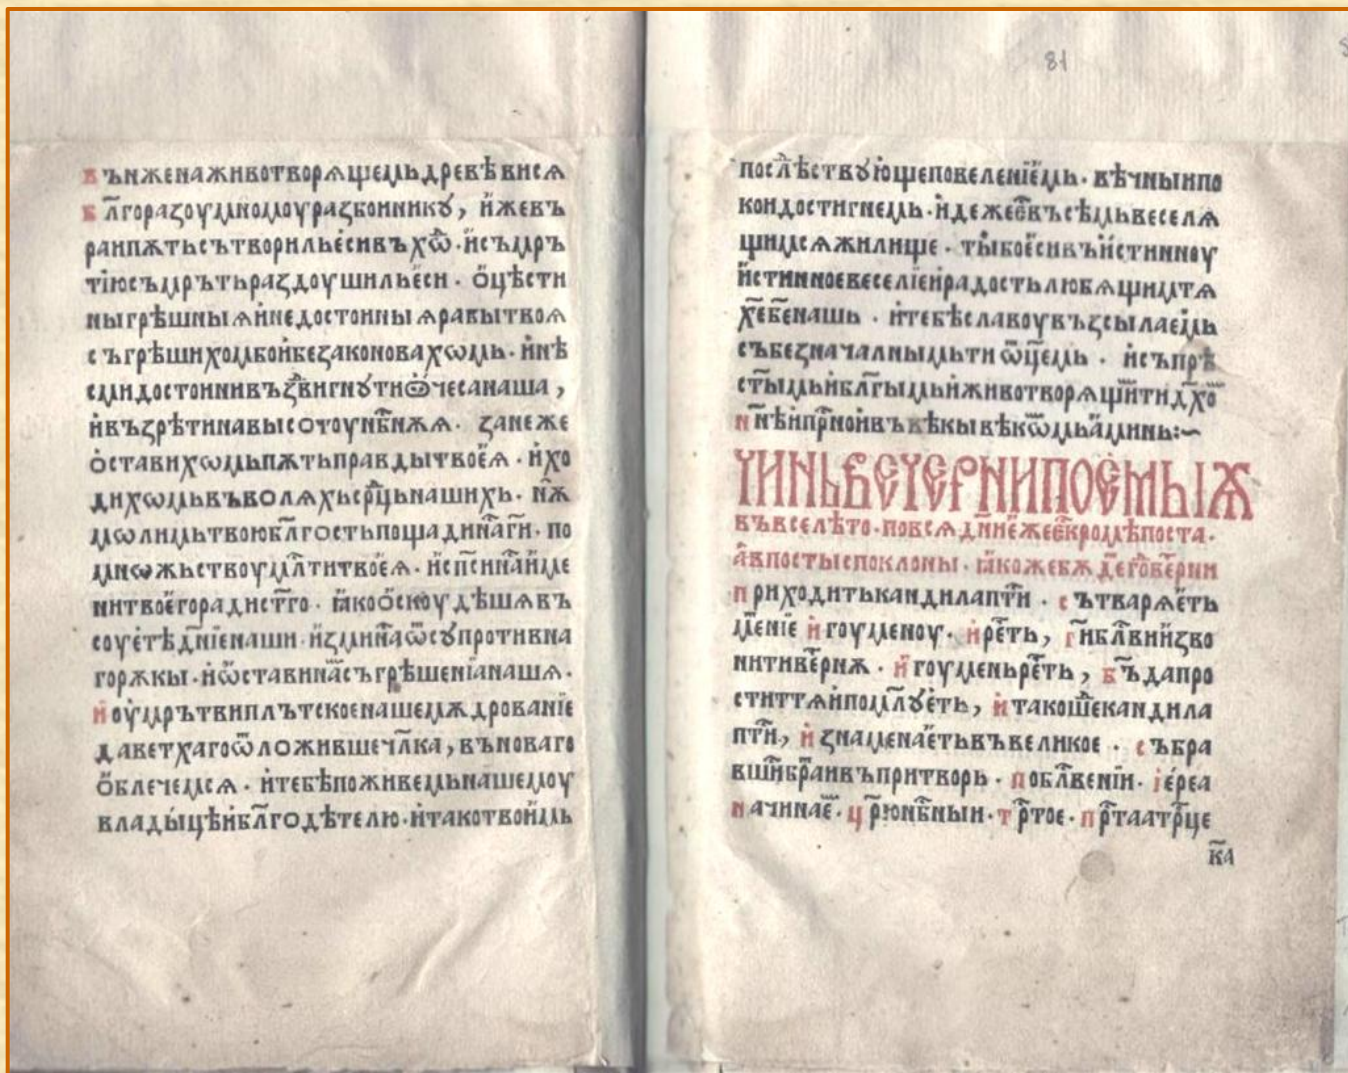 въиженаживотворѧщемьдревѣвисѧ
бл҃горазоумномоуразбоиникꙋ, и҆жевъ
раипѫтьсътворильѐсивъхѡ҃. и҆съмръ
тїюсъмрътьраздоушильѐси. ѻ҆цѣсти
ныгрѣшныѧи҆недостоиныѧрабытвоѧ
съгрѣшихомбои҆безаконовахѡмь. и҆нѣ
смидостоинивъздвигнꙋтиꙫчесанаша,
и҆възрѣтинавысотоунбⷭ҇нꙋѫ. занеже
ѻ҆ставихѡмьпѫтьправдытвоеѧ. и҆хо
дихѡмьвъволѧхьсрⷣцьнашихь. нѫ
мѡлимьтвоюблⷢ҇остьпощадинⷭ҇агⷭ҇и. по
мнѡжьствоумлⷭ҇титвоеѧ. и҆сп҃синⷭ҇аи҆ме
нитвоѐгорадистⷢ҇го. ꙗ҆коѻ҆скоудѣшѧвъ
соуетѣдн҃їенаши. и҆зминⷭ҇аѿсꙋпротивна
горѫкы. и҆ѡ҆ставинⷭ҇асъгрѣшенїанашѧ.
и҆оу҆мрътвиплътскоенашемѫдрованїе
даветхагоѿложившечл҃ка, въноваго
ѻ҆блечемсѧ. и҆тебѣпоживемьнашемоу
владыцѣи҆блⷢ҇одѣтелю. и҆такотвои҆мь
81
послѣствꙋющеповеленїемь. вѣчныипо
коидостигнемь. и҆дежеѐⷭвъсѣмьвеселѧ
щимсѧжилище. тыбоѐсивъи҆стинноу
и҆стинноевеселїеи҆радостьлюбѧщимтѧ
хе҃бе҃нашь. и҆тебѣславоувъзсылаемь
събезначалнымьтиѡ҆ц҃емь. и҆съпрѣ
ст҃ымьи҆блⷢ҇ымьи҆животворѧщїитидх҃о
нн҃ѣи҆прⷭ҇нои҆въвѣкывѣкѡмьа҆минь:~
чиньвечернипоемыїѫ
въвселѣто. повсѧдн҃иѐжееⷭ҇кромѣпоста.
а҆впостыспоклоны. ꙗ҆кожебѫдегⷪ҇вѐрнии
приходитькандилаптⷭ҇и. сътварѧеть
мѣнїеи҆гоуменоу. и҆реть, гⷭ҇иблⷭ҇вии҆зво
нитивеⷱ҇рнѫ. и҆гоуменьреть, бъ҃дапро
ститтѧи҆помлꙋеть, и҆такошⷣекандила
птⷭ҇и, и҆знаменаетьвъвеликое. събра
вшїибраⷮивъпритворь. поблⷭ҇венїи. їереа
начинае. цр҃юнбⷭ҇ныи. трⷭ҇тое. прⷭ҇таатрⷪ҇це
к҃а